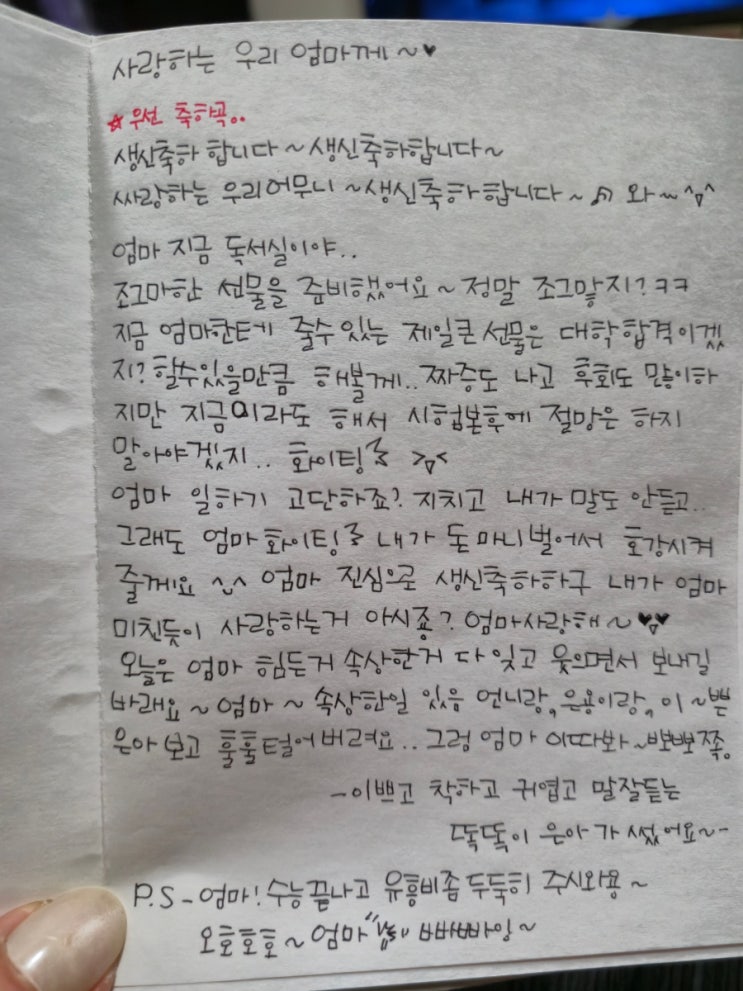 사랑하는 우리 엄마께~♥
☆우선 축하곡..
생신축하 합니다~생신축하합니다~
싸랑하는 우리어머니~생신축하합니다~♬ 와~^△^
엄마 지금 독서실이야..
조그마한 선물을 준비했어요~정말 조그맣지?ㅋㅋ
지금 엄마한테 줄수있는 제일큰선물은 대학합격이겠
지? 할수있을만큼 해볼께..짜증도 나고 후회도 많이하
지만 지금이라도 해서 시험본후에 절망은 하지
말아야겠지.. 화이팅 >△<
엄마 일하기 고단하죠? 지치고 내가 말도 안듣고..
그래도 엄마화이팅 내가 돈 마니벌어서 호강시켜
줄께요 ^^ 엄마 진심으로 생신축하하구 내가 엄마
미친듯이 사랑하는거 아시죵? 엄마사랑해~♥♥
오늘은 엄마 힘든거 속상한거 다 잊고 웃으면서 보내길
바래요~엄마~속상한일 있음 언니랑, 은용이랑, 이~쁜
은아 보고 훌훌털어버려요..그럼 엄마 이따봐~뽀뽀쪽.
-이쁘고 착하고 귀엽고 말잘듣는
똑똑이 은아가 썼어요~-
P.S-엄마! 수능끝나고 유흥비좀 두둑히 주시와용~
오호호호~엄마 빠빠빠이~